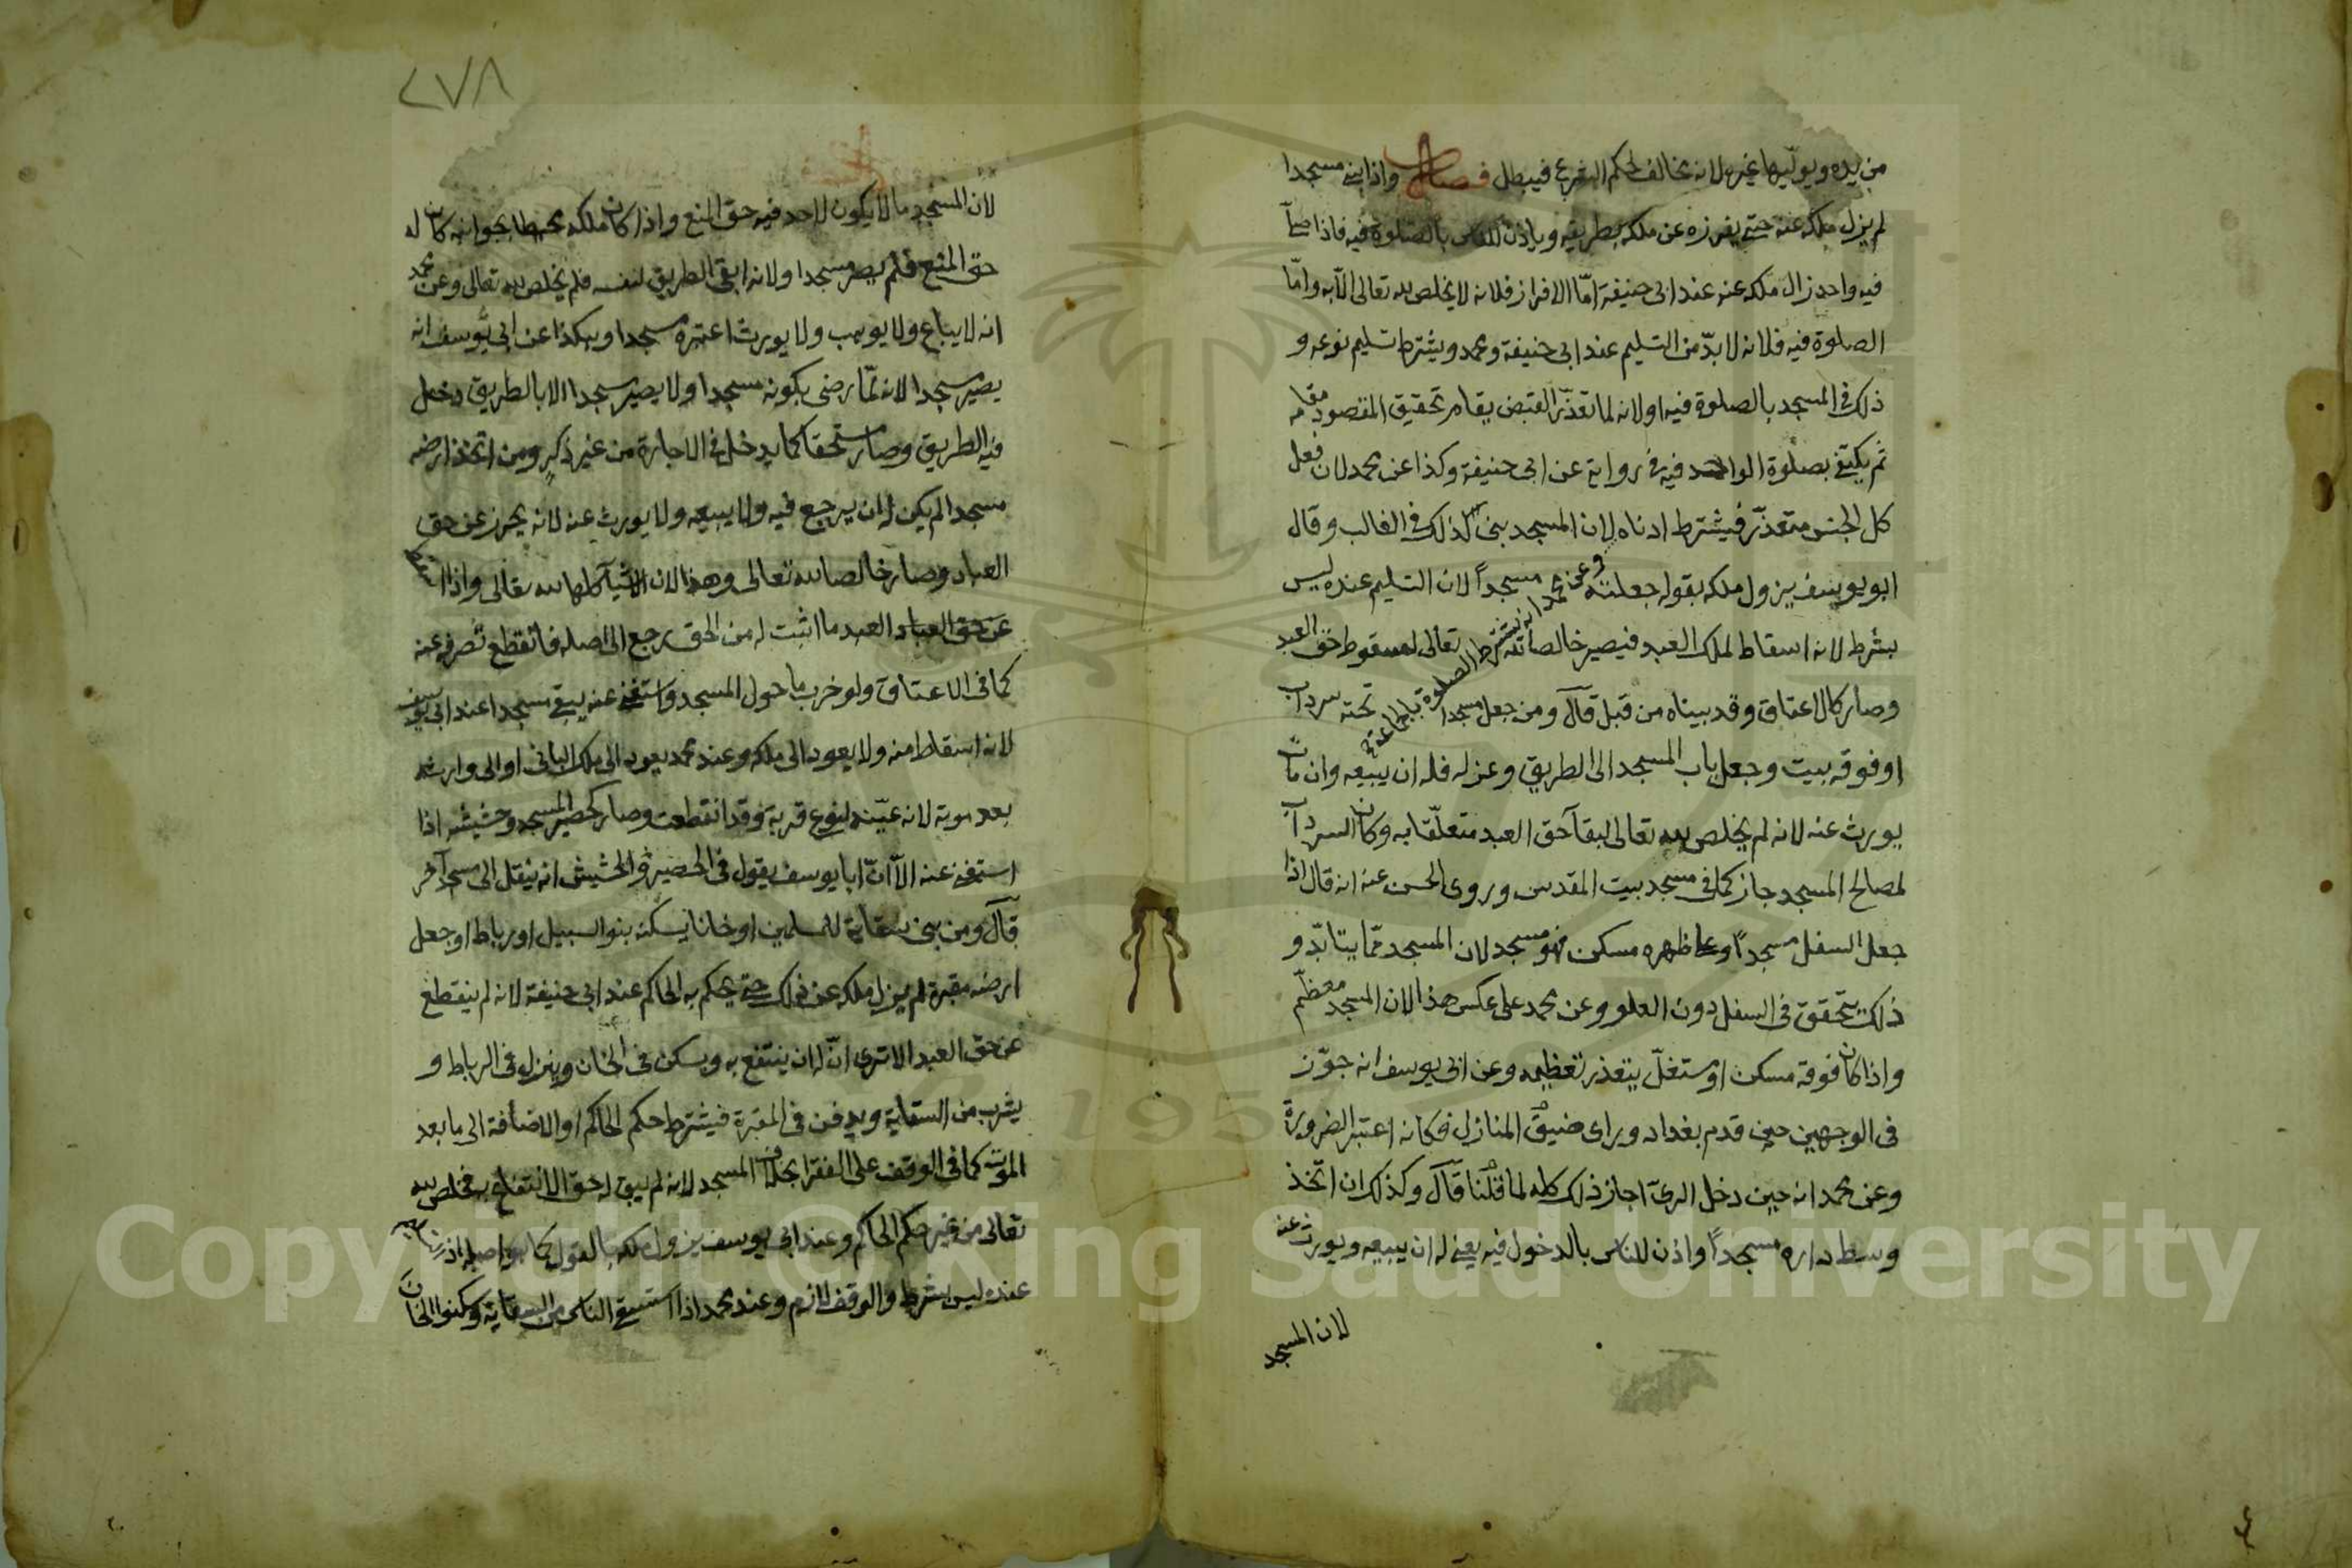 من يده ويوليها غيره لانه مخالف لحكم الشرع فيبطل فصل واذا بنى مسجدا
لم يزل ملكه عنه حتى يفرزه عن ملكه بطريقه وياذن للناس بالصلوة فيه فاذا صلى
فيه واحد زال ملكه عنه عند ابي حنيفة امّا الافراز فلانه لا يخلص لله تعالى الا به وامّا
الصلوة فيه فلانه لا بدّ من التسليم عند ابي حنيفة ومحمد ويشترط تسليم نوعه و
ذلك في المسجد بالصلوة فيه او لانه لما تعذّر القبض يقام تحقيق المقصود مقامه
ثم يكتفى بصلوة الواحد فيه في رواية عن ابي حنيفة وكذا عن محمد لان فعل
كل الجنس متعذّر فيشترط ادناه لان المسجد بنى لذلك في الغالب وقال
وعن محمد انه يشترط الصلوة بالجماعة
ابو يوسف يزول ملكه بقوله جعلته مسجداً لان التسليم عنده ليس
بشرط لانه اسقاط لملك العبد فيصير خالصا لله تعالى لسقوط حق العبد
وصار كالاعتاق وقد بيناه من قبل قال ومن جعل مسجدا تحته سرداب
او فوقه بيت وجعل باب المسجد الى الطريق وعزله فله ان يبيعه وان مات
يورث عنه لانه لم يخلص لله تعالى لبقآ حق العبد متعلّقا به وكان السرداب
لمصالح المسجد جاز كما في مسجد بيت المقدس وروى الحسن عنه انه قال اذا
جعل السفل مسجداً وعلى ظهره مسكن فهو مسجد لان المسجد ممّا يتابّد و
ذلك يتحقق في السفل دون العلو وعن محمد على عكس هذا لان المسجد معظّم
واذا كان فوقه مسكن او مستغلّ يتعذر تعظيمه وعن ابي يوسف انه جوّز
في الوجهين حين قدم بغداد وراى ضيق المنازل فكانه اعتبر الضرورة
وعن محمد انه حين دخل الرىّ اجاز ذلك كله لما قلنا قال وكذلك ان اتّخذ
وسط داره مسجداً واذن للناس بالدخول فيه يعني له ان يبيعه ويورث عنه
لان المسجد
٢٧٨
لان المسجد ما لا يكون لاحد فيه حق المنع واذا كان ملكه محيطا بجوانبه كان له
حق المنع فلم يصر مسجدا ولانه ابقى الطريق لنفسه فلم يخلص لله تعالى وعن محمد
انه لا يباع ولا يوهب ولا يورث اعتبره مسجدا وهكذا عن ابي يوسف انه
يصير مسجدا لانه لمّا رضى بكونه مسجدا ولا يصير مسجدا الا بالطريق دخل
فيه الطريق وصار مستحقا كما يدخل في الاجارة من غير ذكرٍ ومن اتخذ ارضه
مسجدا لم يكن له ان يرجع فيه ولا يبيعه ولا يورث عنه لانه يحرز عن حق
العباد وصار خالصا لله تعالى وهذا لان الاشيآ كلها لله تعالى واذا
عن حق العباد العبد ما اثبت له من الحق رجع الى اصله فانقطع تصرفه عنه
كما في الاعتاق ولو خرب ما حول المسجد واستغنى عنه يبقى مسجدا عند ابي يوسف
لانه اسقاط منه ولا يعود الى ملكه وعند محمد يعود الى ملك الباني او الى وارثه
بعد موته لانه عيّنه لنوع قربة وقد انقطعت وصار كحصير المسجد وحشيشه اذا
استغنى عنه الاّ انّ ابا يوسف يقول في الحصير والحشيش انه ينقل الى مسجد آخر
قال ومن بنى سقاية للمسلمين او خانا يسكنه بنو السبيل او رباطا او جعل
ارضه مقبرة لم يزل ملكه عن ذلك حتى يحكم به الحاكم عند ابي حنيفة لانه لم ينقطع
عن حق العبد الا ترى انّ له ان ينتفع به ويسكن في الخان وينزل في الرباط و
يشرب من السقاية ويدفن في المقبرة فيشترط حكم الحاكم او الاضافة الى ما بعد
الموت كما في الوقف على الفقرا بخلاف المسجد لانه لم يبق له حق الانتفاع به فخلص لله
تعالى من غير حكم الحاكم وعند ابي يوسف يزول ملكه بالقول كما هو اصله اذ التسليم
عنده ليس بشرط والوقف لازم وعند محمد اذا استسقى الناس من السقاية وسكنوا الخان
Copyright © King Saud University
1957